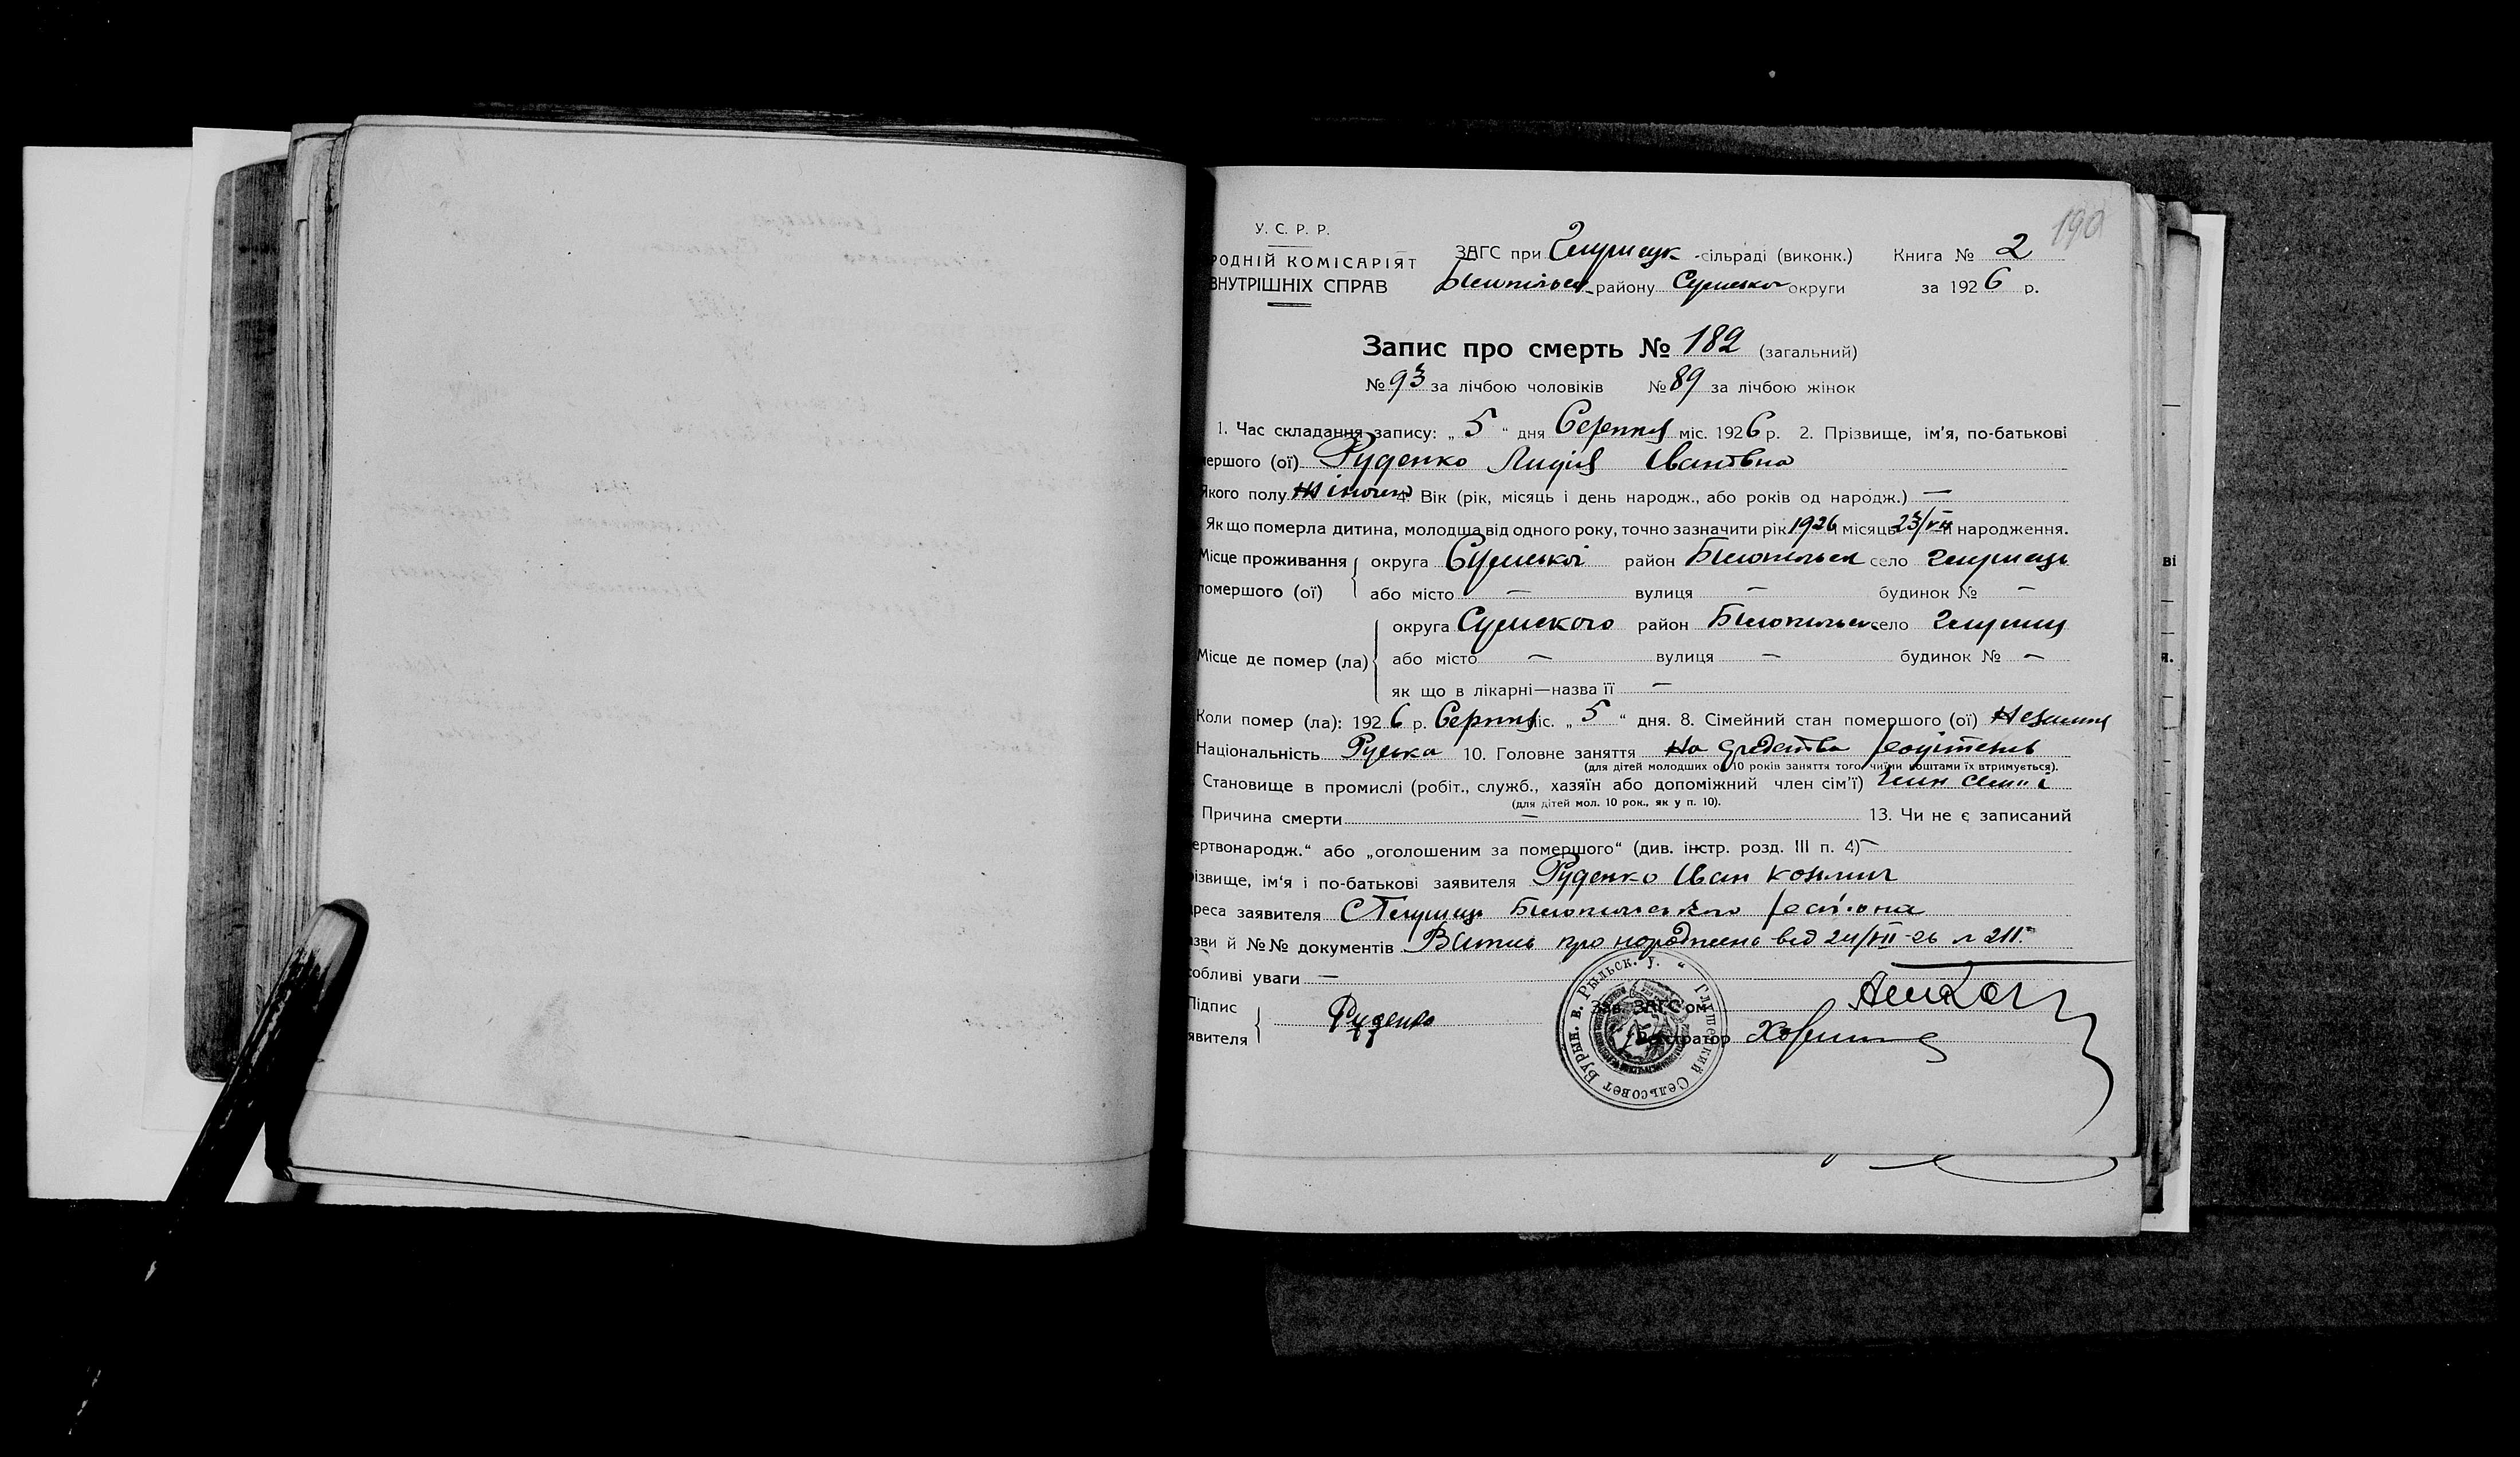 190
У. С. Р. Р.
РОДНІЙ КОМІСАРІЯТ
ВНУТРІШНІХ СПРАВ
ЗАГС при -сільраді (виконк.) Книга № 2
району Сумської округи за 1926 р.
Запис про смерть № 182 (загальний)
№ 93 за лічбою чоловіків № 89 за лічбою жінок
1. Час складання запису: „ 5 “ дня Серпня міс. 1926 р. 2. Прізвище, ім'я, по-батькові
мершого (ої) Руденко Лидія Івановна
Якого полу жіночого 4. Вік (рік, місяць і день народж., або років од народж.) —
Як що померла дитина, молодша від одного року, точно зазначити рік 1926 місяць 23/VII народження.
Місце проживання округа Сумської район село
помершого (ої) або місто — вулиця — будинок № —
округа Сумского район село
Місце де помер (ла) або місто — вулиця — будинок № —
як що в лікарні—назва її —
Коли помер (ла): 1926 р. Серпня міс. „ 5 “ дня. 8. Сімейний стан помершого (ої)
Національність Руська 10. Головне заняття На средства
(для дітей молодших од 10 років заняття того, чиїми коштами їх втримується).
Становище в промислі (робіт., служб., хазяїн або допоміжний член сім'ї) член семії
(для дітей мол. 10 рок., як у п. 10).
Причина смерти — 13. Чи не є записаний
ертвонародж.“ або „оголошеним за помершого“ (див. інстр. розд. III п. 4) —
різвище, ім'я і по-батькові заявителя Руденко Іван
дреса заявителя
азви й №№ документів про народження від 24/VII-26 № 211.
собливі уваги —
Підпис
явителя
Руденко
Зав. ЗАГС'ом
Реєстратор
Глушецкий Сельсовет Бурын. в. Рыльск. у.
ві
я.